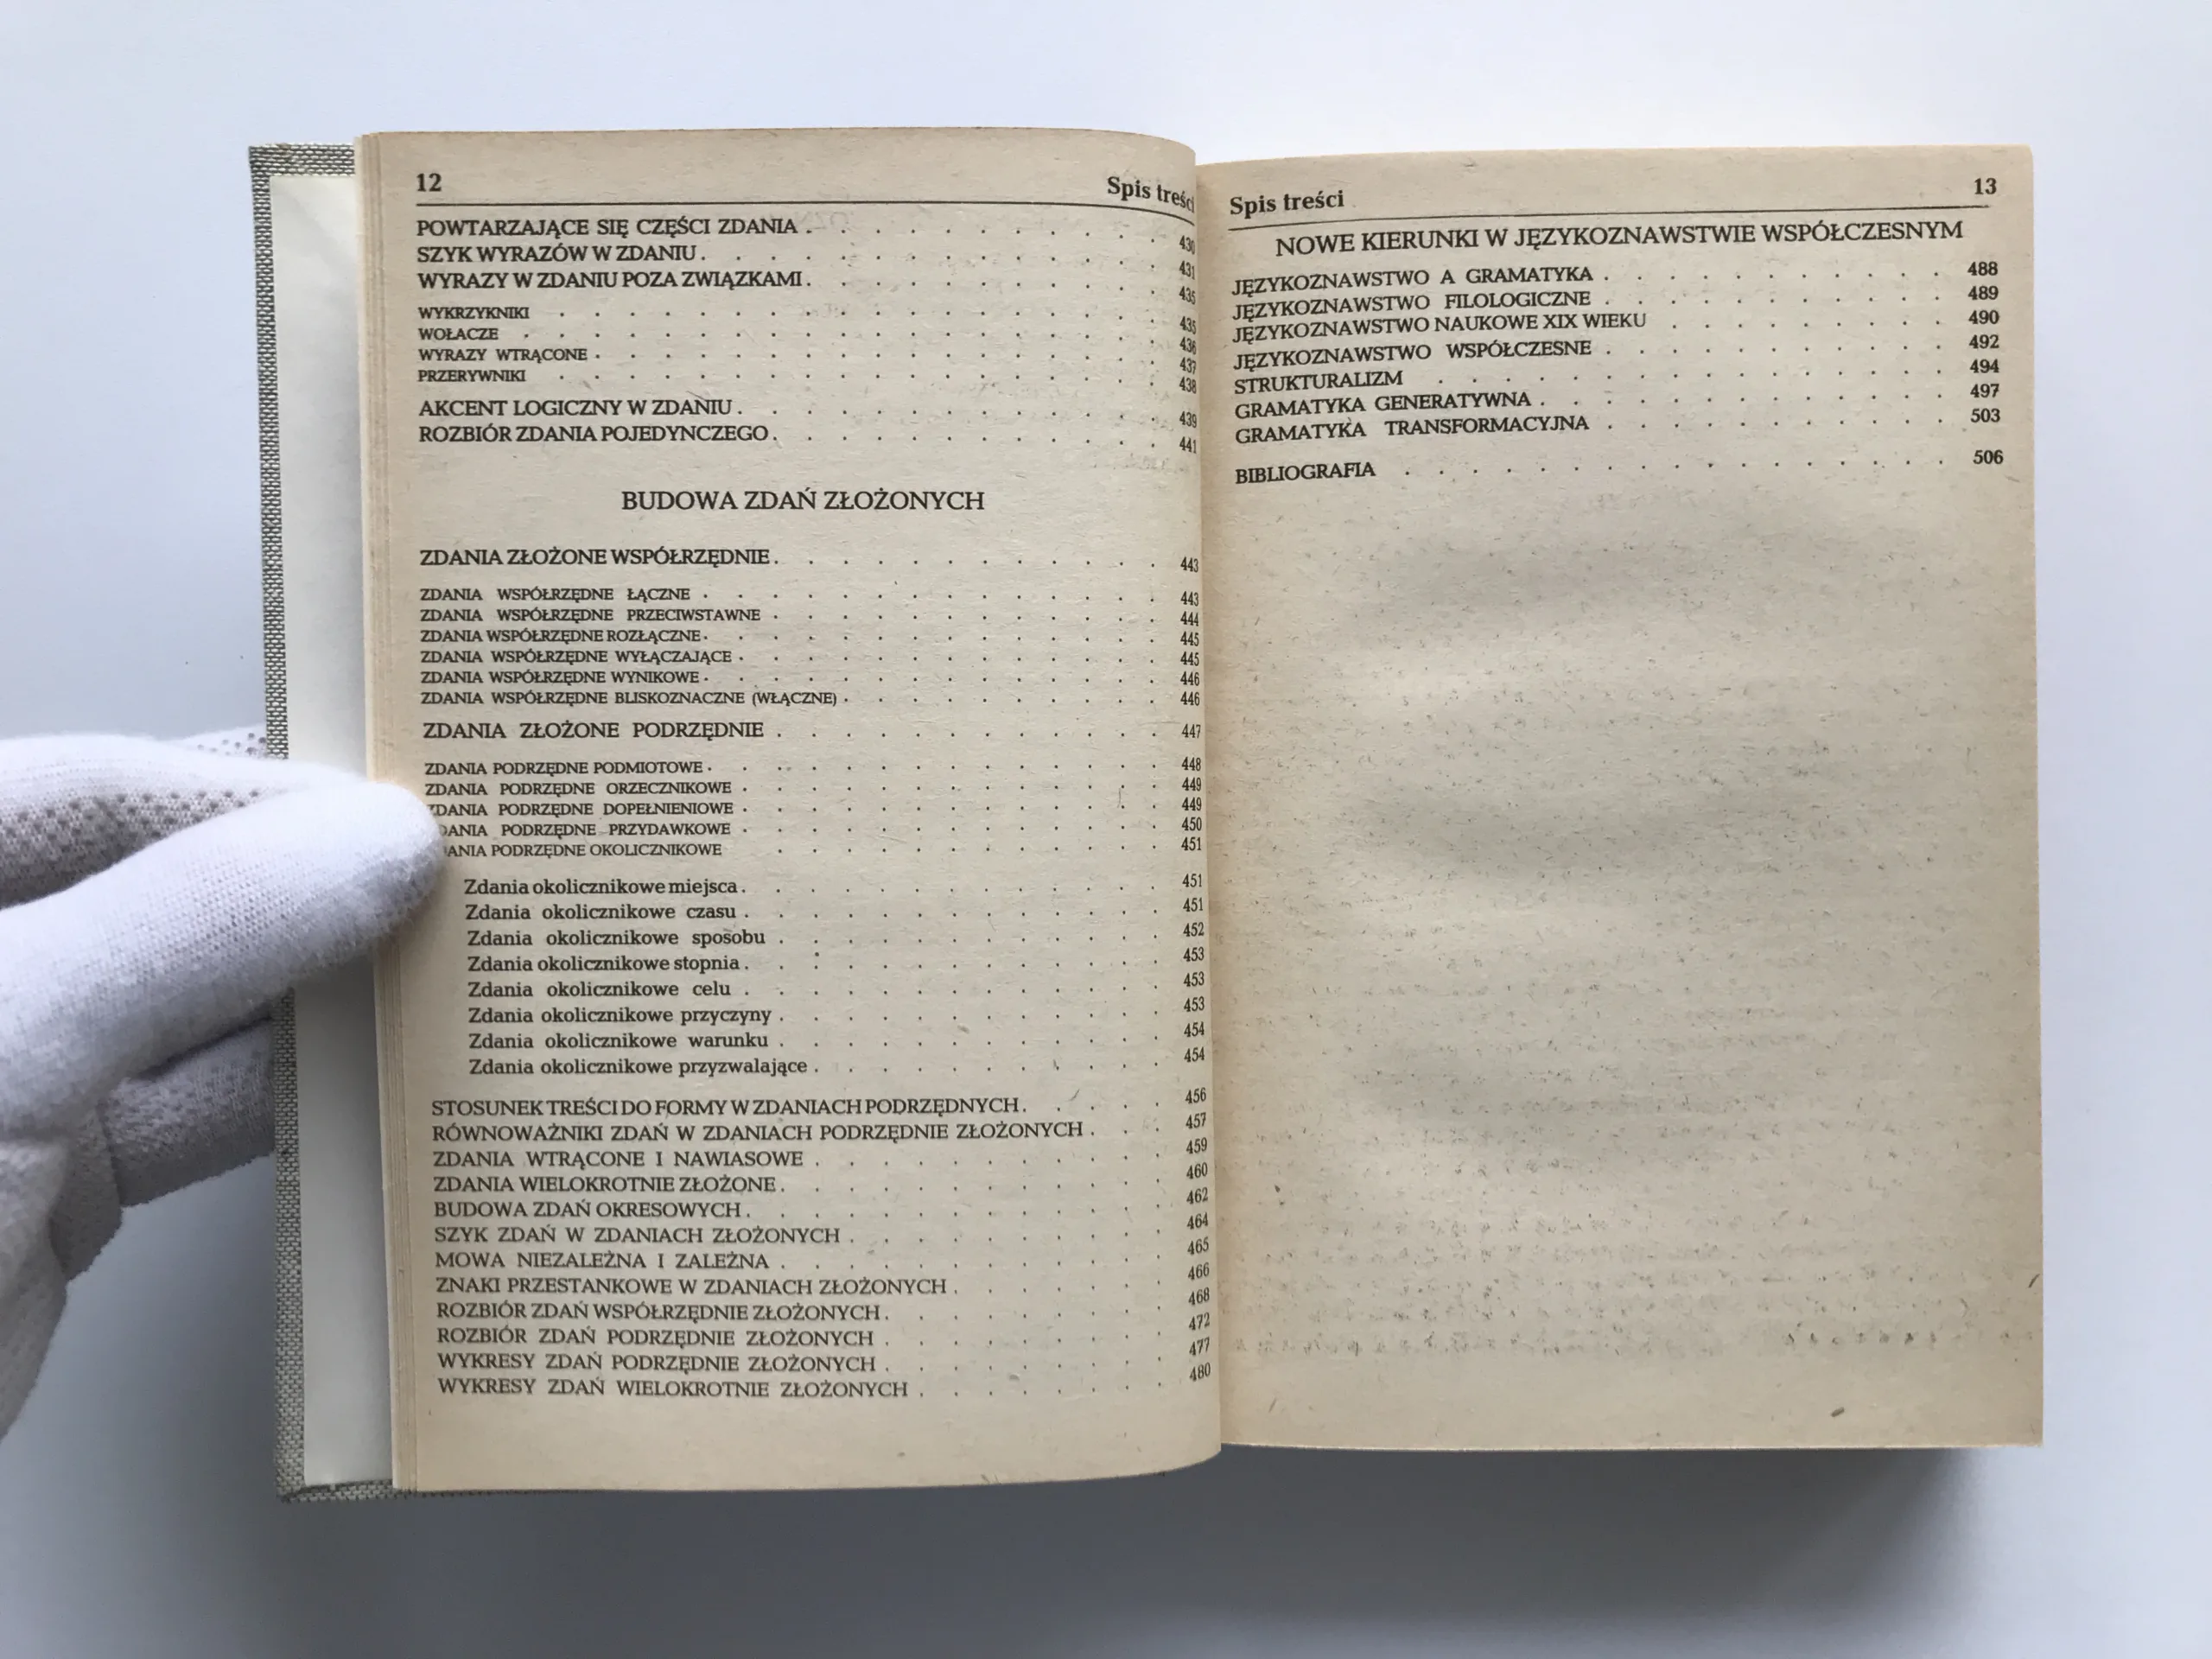 12
Spis treści
POWTARZAJĄCE SIĘ CZĘŚCI ZDANIA . . . . . . . . . . . 430
SZYK WYRAZÓW W ZDANIU . . . . . . . . . . . . . 431
WYRAZY W ZDANIU POZA ZWIĄZKAMI . . . . . . . . . . . 435
WYKRZYKNIKI . . . . . . . . . . . . . . . . . 435
WOŁACZE . . . . . . . . . . . . . . . . . . 436
WYRAZY WTRĄCONE . . . . . . . . . . . . . . . . 437
PRZERYWNIKI . . . . . . . . . . . . . . . . . 438
AKCENT LOGICZNY W ZDANIU . . . . . . . . . . . . 439
ROZBIÓR ZDANIA POJEDYNCZEGO . . . . . . . . . . . 441
BUDOWA ZDAŃ ZŁOŻONYCH
ZDANIA ZŁOŻONE WSPÓŁRZĘDNIE . . . . . . . . . . . 443
ZDANIA WSPÓŁRZĘDNE ŁĄCZNE . . . . . . . . . . . . . 443
ZDANIA WSPÓŁRZĘDNE PRZECIWSTAWNE . . . . . . . . . . . 444
ZDANIA WSPÓŁRZĘDNE ROZŁĄCZNE . . . . . . . . . . . . . 445
ZDANIA WSPÓŁRZĘDNE WYŁĄCZAJĄCE . . . . . . . . . . . . 445
ZDANIA WSPÓŁRZĘDNE WYNIKOWE . . . . . . . . . . . . . 446
ZDANIA WSPÓŁRZĘDNE BLISKOZNACZNE (WŁĄCZNE) . . . . . . . . . 446
ZDANIA ZŁOŻONE PODRZĘDNIE . . . . . . . . . . . 447
ZDANIA PODRZĘDNE PODMIOTOWE . . . . . . . . . . . . . 448
ZDANIA PODRZĘDNE ORZECZNIKOWE . . . . . . . . . . . . 449
ZDANIA PODRZĘDNE DOPEŁNIENIOWE . . . . . . . . . . . . 449
DANIA PODRZĘDNE PRZYDAWKOWE . . . . . . . . . . . . 450
ANIA PODRZĘDNE OKOLICZNIKOWE . . . . . . . . . . . 451
Zdania okolicznikowe miejsca . . . . . . . . . . . . 451
Zdania okolicznikowe czasu . . . . . . . . . . . . 451
Zdania okolicznikowe sposobu . . . . . . . . . . . 452
Zdania okolicznikowe stopnia . . . . . . . . . . . . 453
Zdania okolicznikowe celu . . . . . . . . . . . . 453
Zdania okolicznikowe przyczyny . . . . . . . . . . . 453
Zdania okolicznikowe warunku . . . . . . . . . . . 454
Zdania okolicznikowe przyzwalające . . . . . . . . . . 454
STOSUNEK TREŚCI DO FORMY W ZDANIACH PODRZĘDNYCH . . . . . 456
RÓWNOWAŻNIKI ZDAŃ W ZDANIACH PODRZĘDNIE ZŁOŻONYCH . . . 457
ZDANIA WTRĄCONE I NAWIASOWE . . . . . . . . . . 459
ZDANIA WIELOKROTNIE ZŁOŻONE . . . . . . . . . . . 460
BUDOWA ZDAŃ OKRESOWYCH . . . . . . . . . . . . 462
SZYK ZDAŃ W ZDANIACH ZŁOŻONYCH . . . . . . . . . 464
MOWA NIEZALEŻNA I ZALEŻNA . . . . . . . . . . . 465
ZNAKI PRZESTANKOWE W ZDANIACH ZŁOŻONYCH . . . . . . 466
ROZBIÓR ZDAŃ WSPÓŁRZĘDNIE ZŁOŻONYCH . . . . . . . . 468
ROZBIÓR ZDAŃ PODRZĘDNIE ZŁOŻONYCH . . . . . . . . 472
WYKRESY ZDAŃ PODRZĘDNIE ZŁOŻONYCH . . . . . . . . 477
WYKRESY ZDAŃ WIELOKROTNIE ZŁOŻONYCH . . . . . . . 480
Spis treści
13
NOWE KIERUNKI W JĘZYKOZNAWSTWIE WSPÓŁCZESNYM
JĘZYKOZNAWSTWO A GRAMATYKA . . . . . . . . . . 488
JĘZYKOZNAWSTWO FILOLOGICZNE . . . . . . . . . . 489
JĘZYKOZNAWSTWO NAUKOWE XIX WIEKU . . . . . . . . 490
JĘZYKOZNAWSTWO WSPÓŁCZESNE . . . . . . . . . . 492
STRUKTURALIZM . . . . . . . . . . . . . . . 494
GRAMATYKA GENERATYWNA . . . . . . . . . . . . 497
GRAMATYKA TRANSFORMACYJNA . . . . . . . . . . 503
BIBLIOGRAFIA . . . . . . . . . . . . . . . . 506